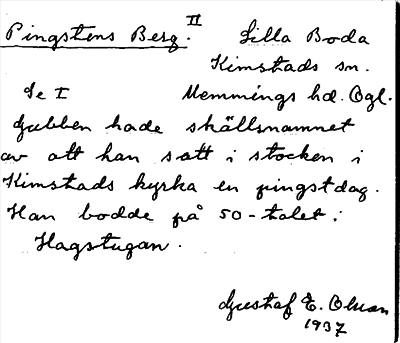 Pingstens Berg. II
Lilla Boda
Kimstads sn.
Se I Memmings hd. Ögl.
Gubben hade skällsnamnet
av att han satt i stocken i
Kimstads kyrka en pingstdag.
Han bodde på 50-talet i
Hagstugan.
Gustaf E. Olsson
1937